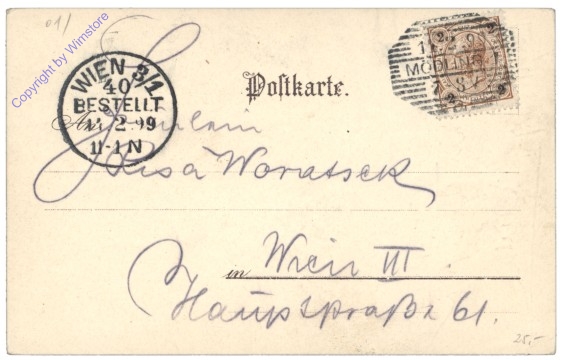 01)
Copyright by Wimstore
WIEN 3/1
40
BESTELLT
11 2 99
11-1N
Postkarte.
MÖDLING
An
Fräulein
Lisa Woratsek
in Wien III.
Hauptstraße 61.
25,-